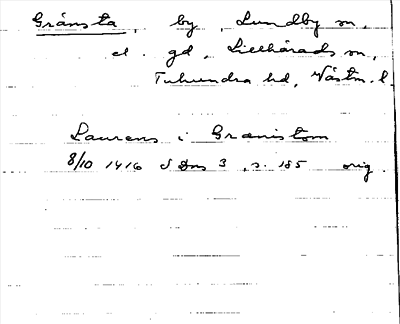 Gränsta, by, Lundby sn,
el. gd, Lillhärads sn,
Tuhundra hd, Västm. l.
Laurens i Grænistom
8/10 1416 SDns 3, s. 185 orig.